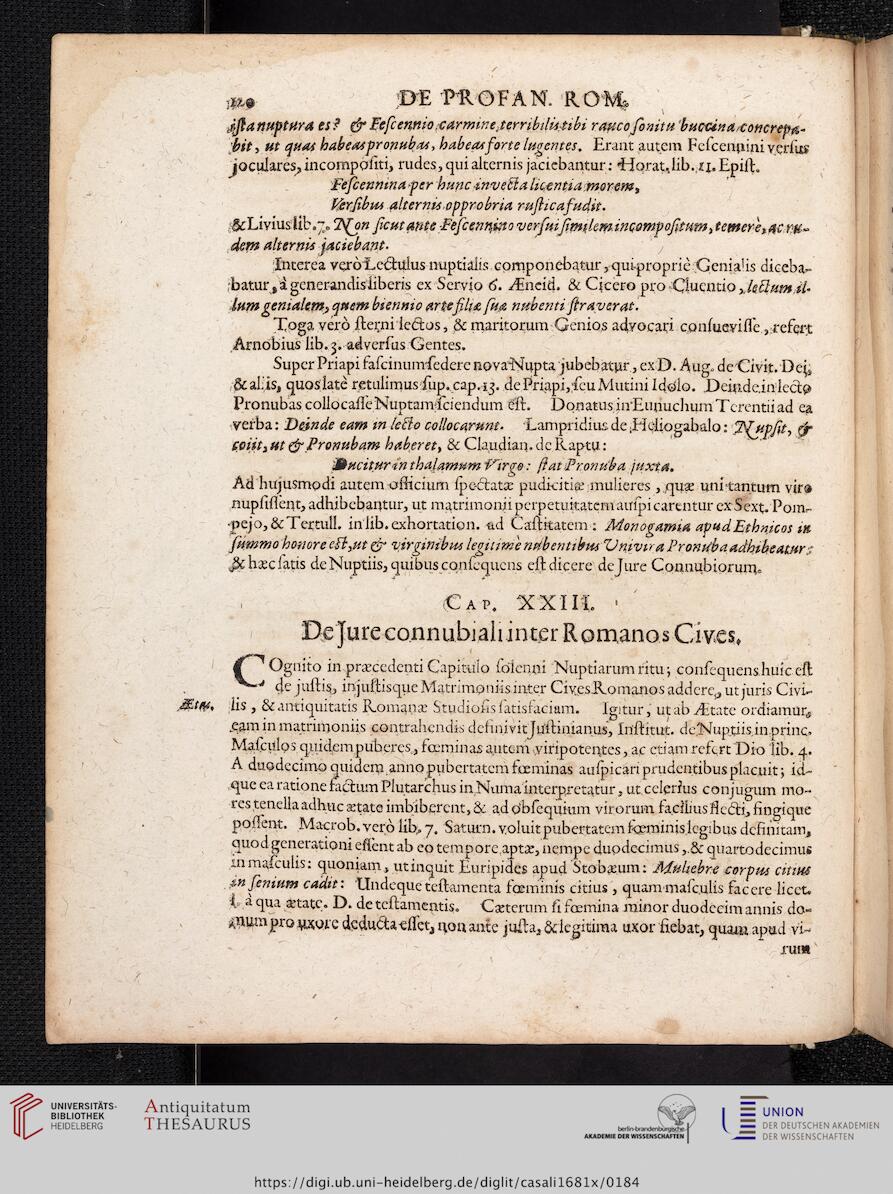 120 DE PROFAN. ROM.
ista nuptura es? & Fescennio carmine, terribilis tibi rauco sonitu buccina concrepa-
bit, ut quas habeas pronubas, habeas forte lugentes. Erant autem Fescennini versus
joculares, incompositi, rudes, qui alternis jaciebantur: Horat. lib. 11. Epist.
Fescennina per hunc invecta licentia morem,
Versibus alternis opprobria rustica fudit.
& Livius lib. 7. Non sicut ante Fescennino versui similem incompositum, temerè, ac ru-
dem alternis jaciebant.
Interea verò Lectulus nuptialis componebatur, qui propriè Genialis diceba-
batur, à generandis liberis ex Servio 6. Æneid. & Cicero pro Cluentio, lectum il-
lum genialem, quem biennio arte filiæ suæ nubenti straverat.
Toga verò sterni lectos, & maritorum Genios advocari consuevisse, refert
Arnobius lib. 3. adversus Gentes.
Super Priapi fascinum sedere nova Nupta jubebatur, ex D. Aug. de Civit. Dei,
& aliis, quos latè retulimus sup. cap. 13. de Priapi, seu Mutini Idolo. Deinde in lecto
Pronubas collocasse Nuptam sciendum est. Donatus in Eunuchum Terentii ad ea
verba: Deinde eam in lecto collocarunt. Lampridius de Heliogabalo: Nupsit, &
coiit, ut & Pronubam haberet, & Claudian. de Raptu:
Ducitur in thalamum Virgo: stat Pronuba juxta.
Ad hujusmodi autem officium spectatæ pudicitiæ mulieres, quæ uni tantum viro
nupsissent, adhibebantur, ut matrimonii perpetuitatem auspicarentur ex Sext. Pom-
pejo, & Tertull. in lib. exhortation. ad Castitatem: Monogamia apud Ethnicos in
summo honore est, ut & virginibus legitimè nubentibus Univira Pronuba adhibeatur:
& hæc satis de Nuptiis, quibus consequens est dicere de Jure Connubiorum.
CAP. XXIII.
De Jure connubiali inter Romanos Cives.
COgnito in præcedenti Capitulo solenni Nuptiarum ritu; consequens huic est
de justis, injustisque Matrimoniis inter Cives Romanos addere, ut juris Civi-
Ætas. lis, & antiquitatis Romanæ Studiosis satisfaciam. Igitur, ut ab Ætate ordiamur,
eam in matrimoniis contrahendis definivit Justinianus, Institut. de Nuptiis in princ.
Masculos quidem puberes, fœminas autem viripotentes, ac etiam refert Dio lib. 4.
A duodecimo quidem anno pubertatem fœminas auspicari prudentibus placuit; id-
que ea ratione factum Plutarchus in Numa interpretatur, ut celerius conjugum mo-
res tenella adhuc ætate imbiberent, & ad obsequium virorum facilius flecti, fingique
possent. Macrob. verò lib. 7. Saturn. voluit pubertatem fœminis legibus definitam,
quod generationi essent ab eo tempore aptæ, nempe duodecimus, & quartodecimus
in masculis: quoniam, ut inquit Euripides apud Stobæum: Muliebre corpus citius
in senium cadit: Undeque testamenta fœminis citius, quam masculis facere licet.
l. à qua ætate. D. de testamentis. Cæterum si fœmina minor duodecim annis do-
mum pro uxore deducta esset, non ante justa, & legitima uxor fiebat, quam apud vi-
rum
UNIVERSITÄTS-
BIBLIOTHEK
HEIDELBERG
Antiquitatum
THESAURUS
berlin-brandenburgische
AKADEMIE DER WISSENSCHAFTEN
UNION
DER DEUTSCHEN AKADEMIEN
DER WISSENSCHAFTEN
https://digi.ub.uni-heidelberg.de/diglit/casali1681x/0184